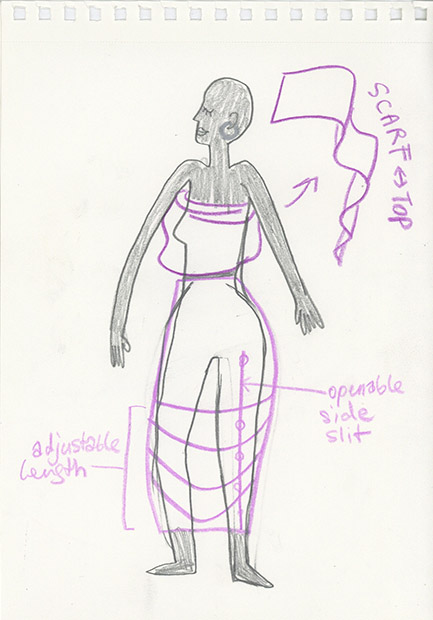 SCARF ↔ TOP
openable
side
slit
adjustable
length